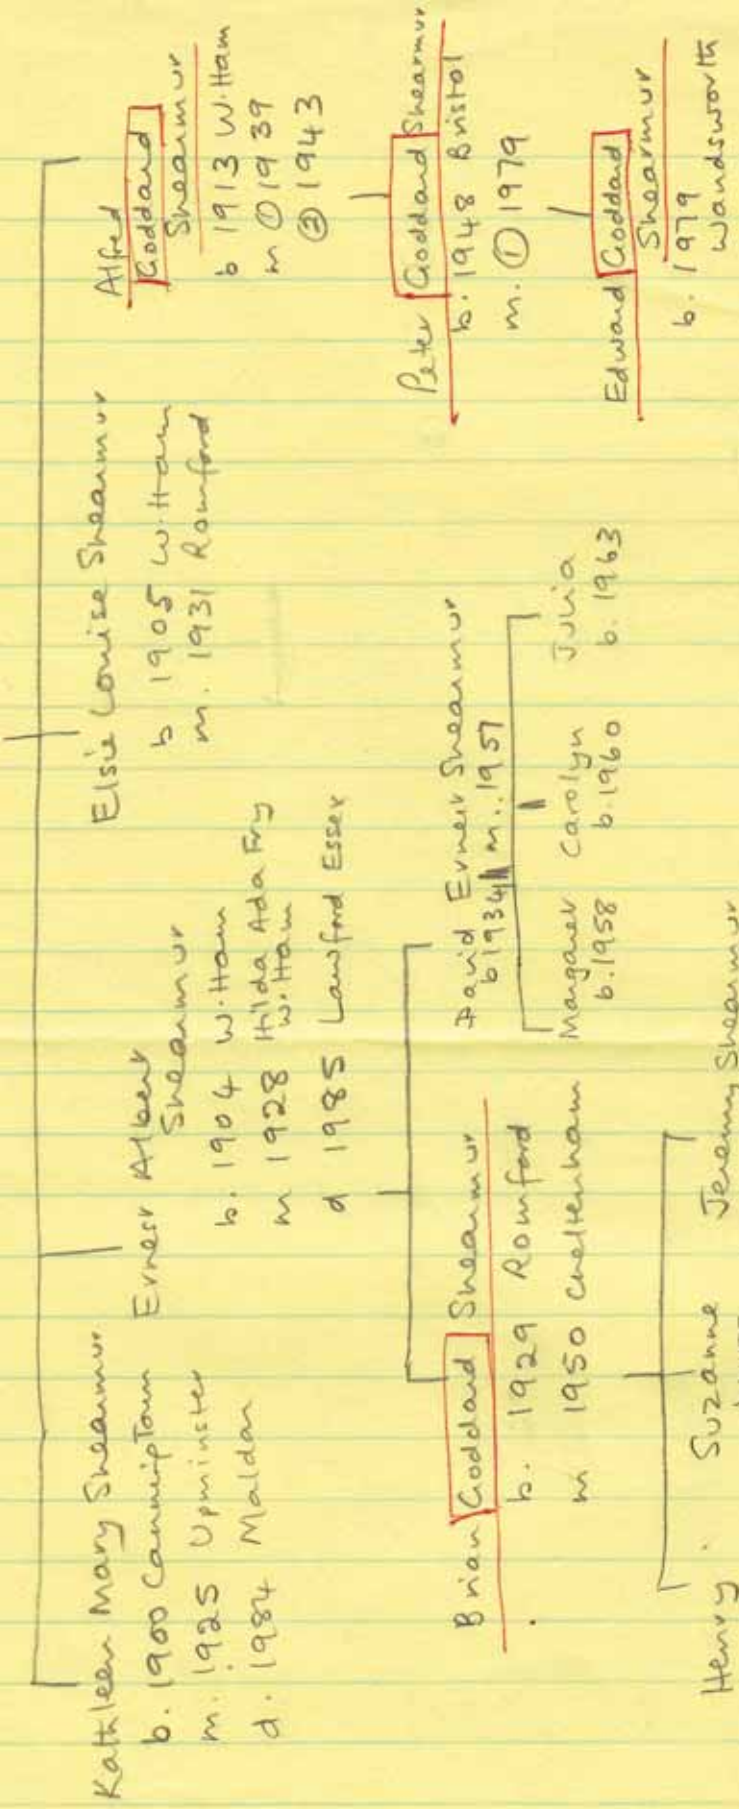 Kathleen Mary Shearmur
b. 1900 Canning Town
m. 1925 Upminster
d. 1984 Maldon
Ernest Albert
Shearmur
b. 1904 W. Ham
m 1928 Hilda Ada Fry
W. Ham
d 1985 Lawford Essex
Elsie Louise Shearmur
b 1905 W. Ham
m. 1931 Romford
Alfred
Goddard
Shearmur
b 1913 W. Ham
m ① 1939
② 1943
Brian Goddard Shearmur
b. 1929 Romford
m 1950 Cheltenham
David Ernest Shearmur
b 1934 m. 1957
Peter Goddard Shearmur
b. 1948 Bristol
m. ① 1979
Margaret Carolyn Julia
b. 1958 b. 1960 b. 1963
Edward Goddard
Shearmur
b. 1979
Wandsworth
Henry Suzanne Jeremy Shearmur